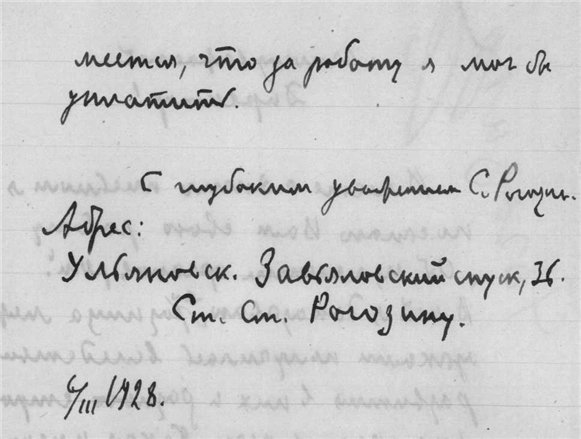 меется, что за работу я мог бы
уплатить.
С глубоким уважением С. Рогозин.
Адрес:
Ульяновск. Завьяловский спуск, 36.
Ст. Ст. Рогозину.
6/III 1928.